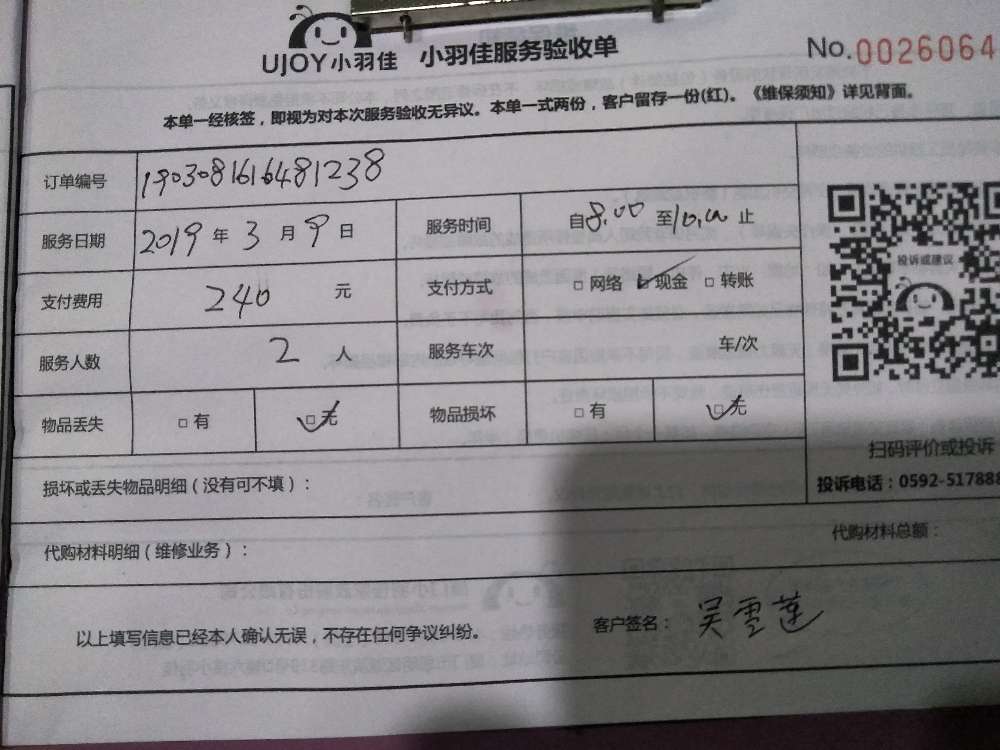 UJOY小羽佳 小羽佳服务验收单 No.0026064
本单一经核签，即视为对本次服务验收无异议。本单一式两份，客户留存一份(红)。《维保须知》详见背面。
订单编号 190308161648 1238
服务日期 2019 年 3 月 9 日 服务时间 自8.00 至10.00 止
支付费用 240 元 支付方式 □ 网络 □ 现金 □ 转账
投诉或建议
服务人数 2 人 服务车次 车/次
物品丢失 □ 有 □ 无 物品损坏 □ 有 □ 无
扫码评价或投诉
损坏或丢失物品明细（没有可不填）：
投诉电话：0592-517888
代购材料明细（维修业务）： 代购材料总额：
以上填写信息已经本人确认无误，不存在任何争议纠纷。 客户签名： 吴雪莲